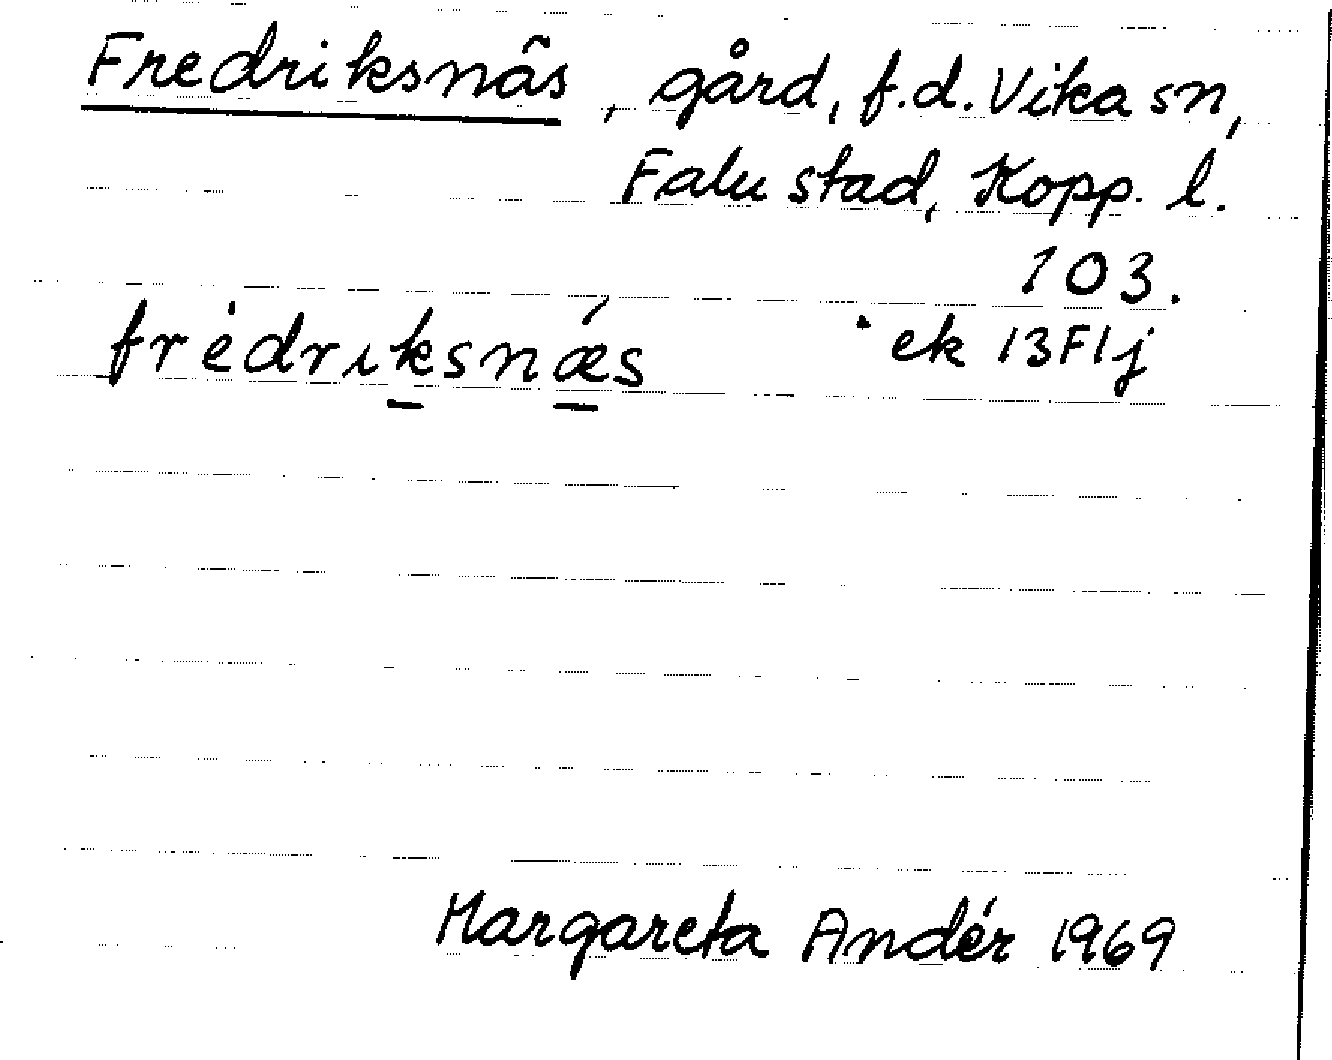 Fredriksnäs, gård, f.d. Vika sn,
Falu stad, Kopp. l.
103.
frèdriksnǽs ek 13F1j
Margareta Andér 1969